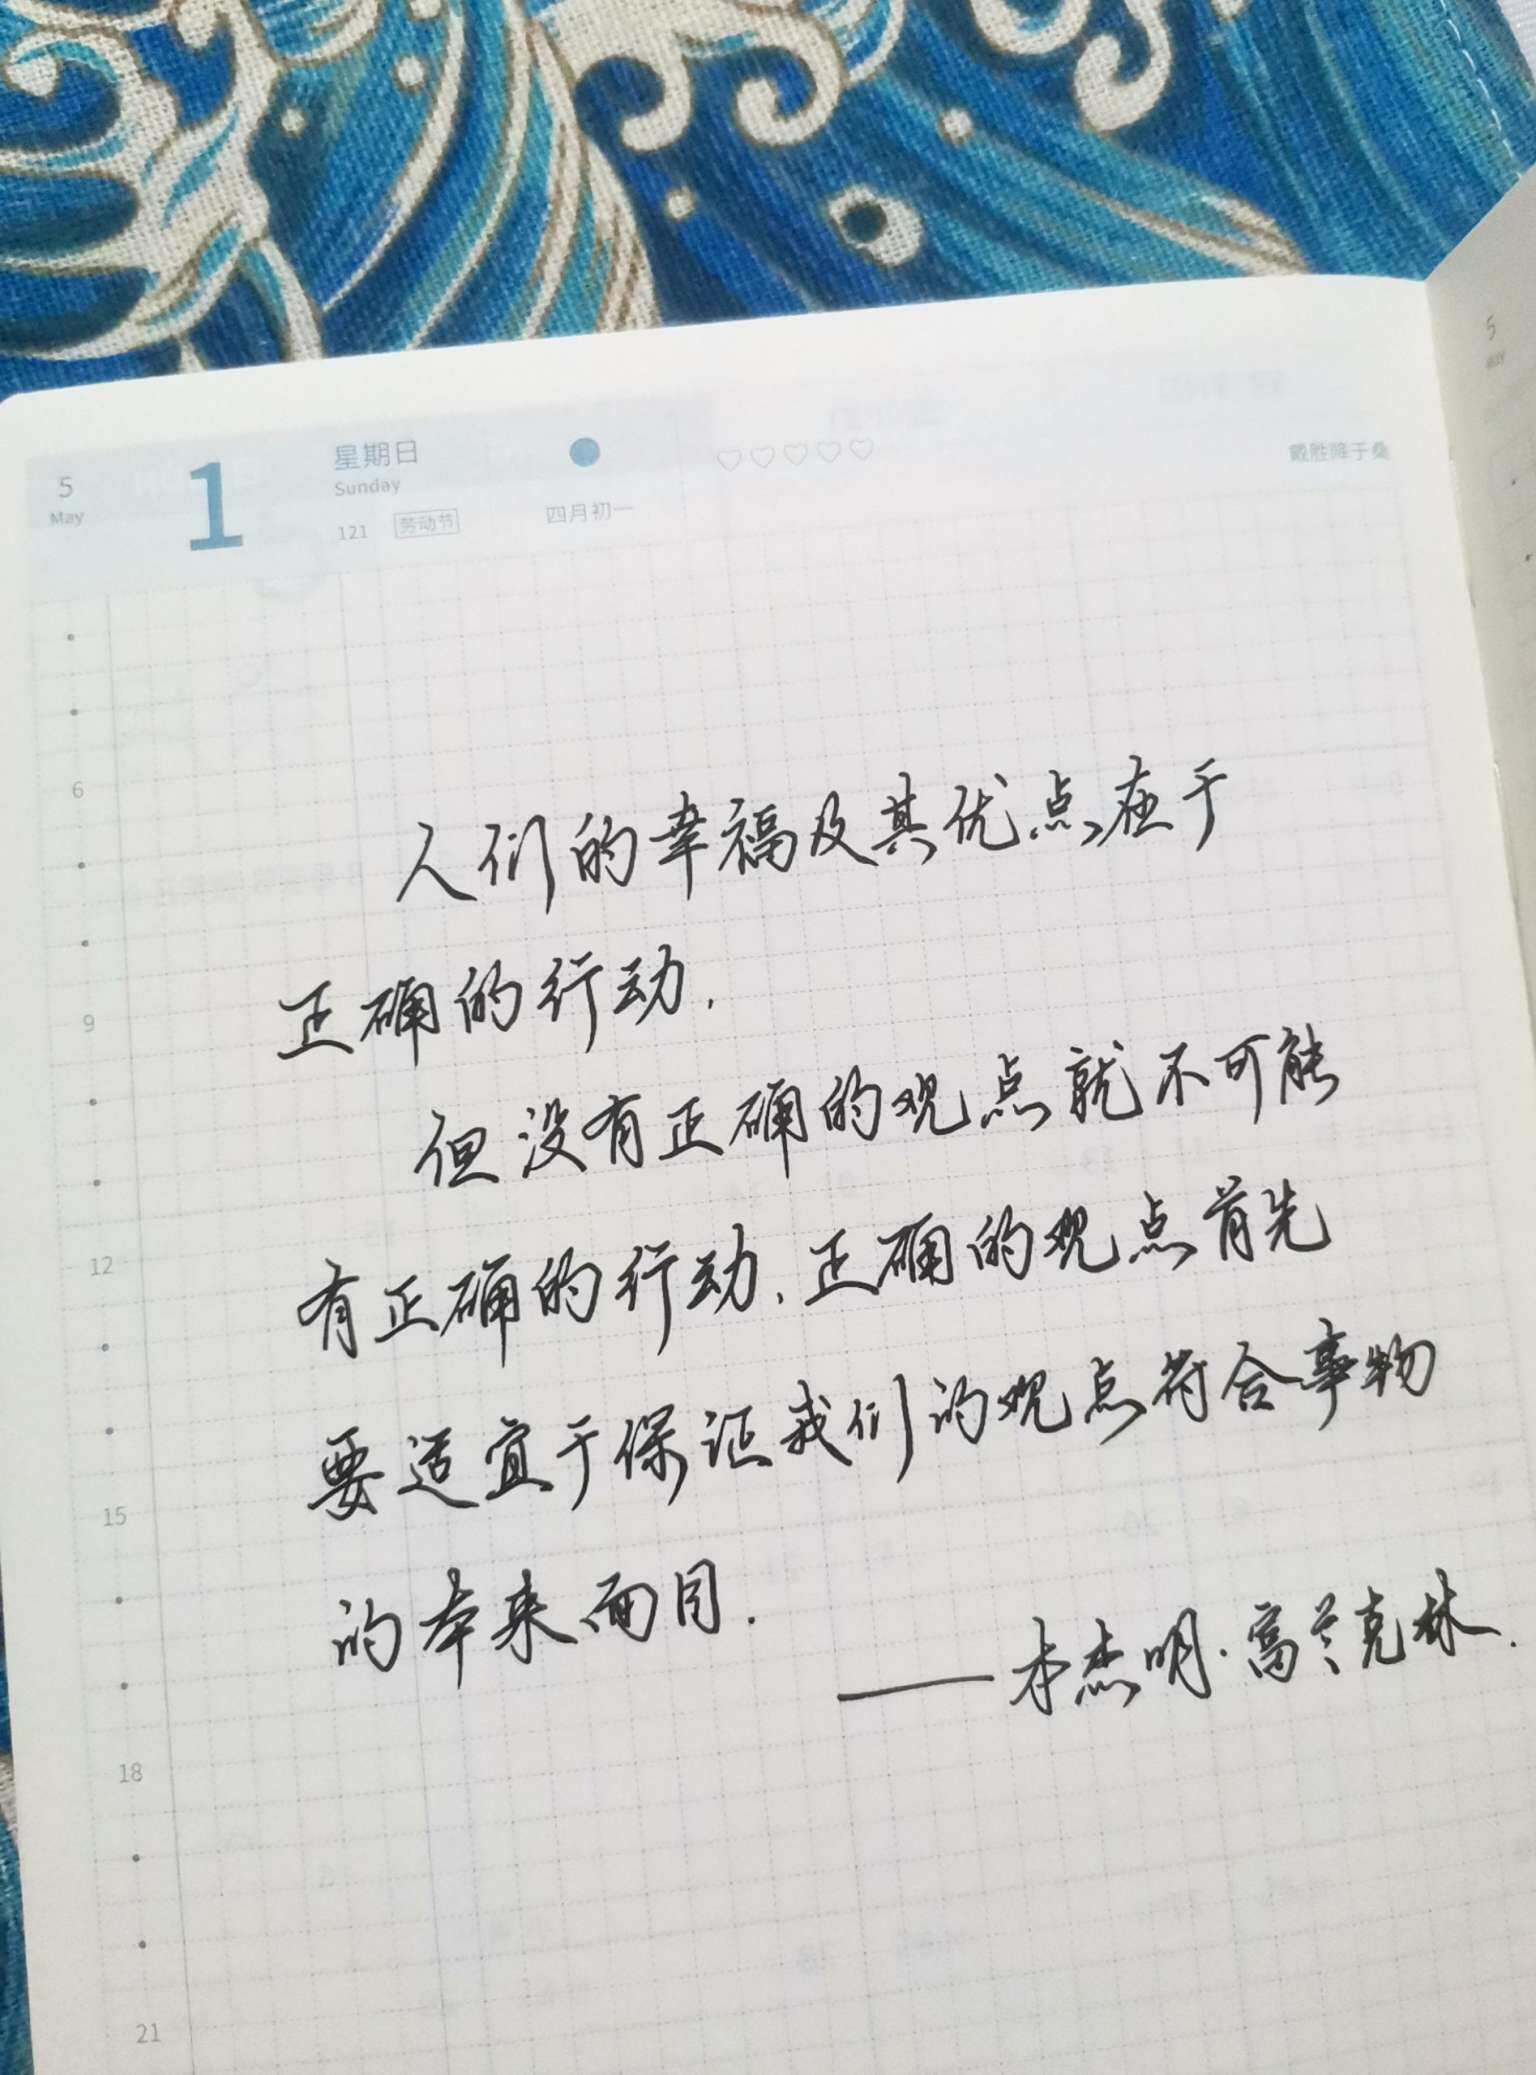 5
May
1
星期日
Sunday
121 劳动节
四月初一
戴胜降于桑
人们的幸福及其优点在于
正确的行动.
但没有正确的观点就不可能
有正确的行动.正确的观点首先
要适宜于保证我们的观点符合事物
的本来面目.
——本杰明·富兰克林.
6
9
12
15
18
21
5
May